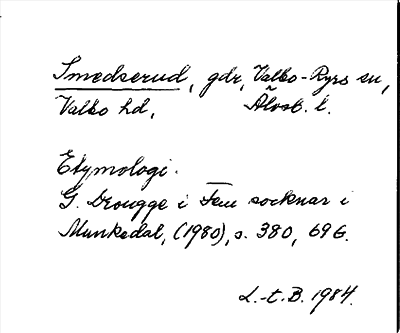 Smedserud, gdr, Valbo-Ryrs sn,
Valbo hd, Älvsb. l.
Etymologi.
G. Drougge i Fem socknar i
Munkedal, (1980), s. 380, 696.
L.-t. B. 1984.